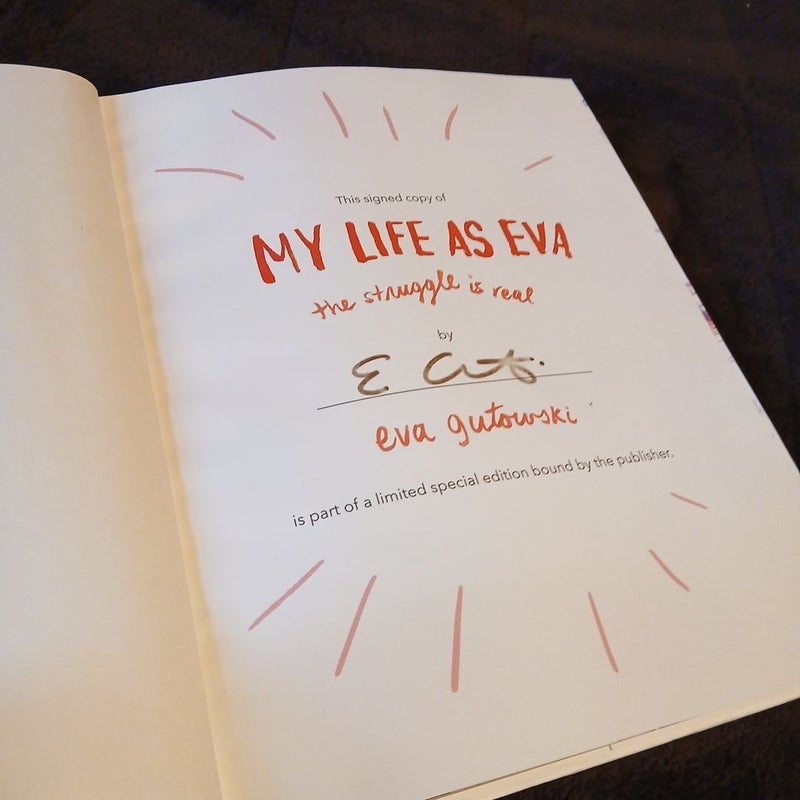 This signed copy of
MY LIFE AS EVA
the struggle is real
by
eva gutowski
is part of a limited special edition bound by the publisher.